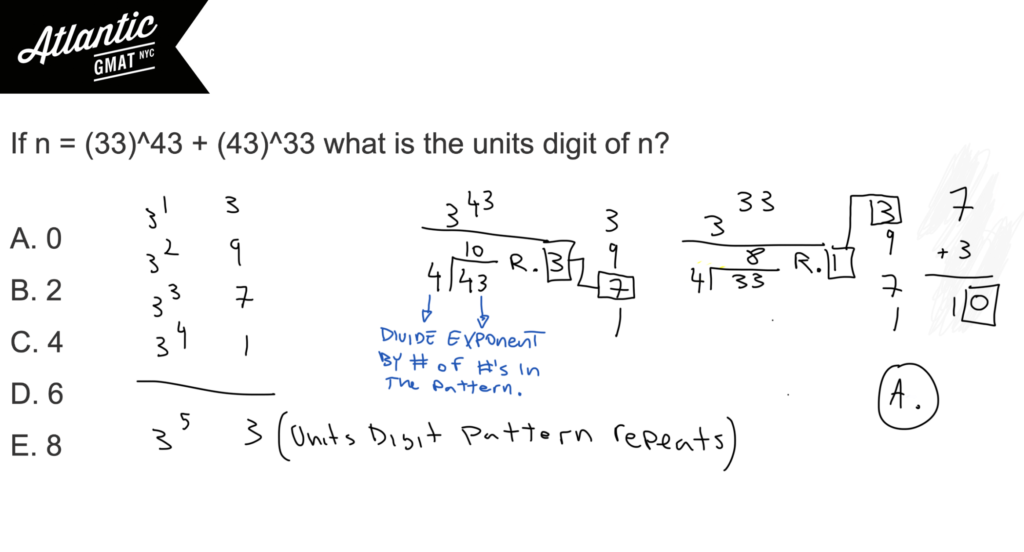 Atlantic
GMAT NYC
If n = (33)^43 + (43)^33 what is the units digit of n?
A. 0
B. 2
C. 4
D. 6
E. 8
3^1 3
3^2 9
3^3 7
3^4 1
3^5 3 (Units Digit pattern repeats)
3^43
10
4 43 R. 3
3
9
7
1
DIVIDE EXPONENT
BY # OF #'s In
The Pattern.
3^33
8
4 33 R. 1
3
9
7
1
7
+ 3
10
A.